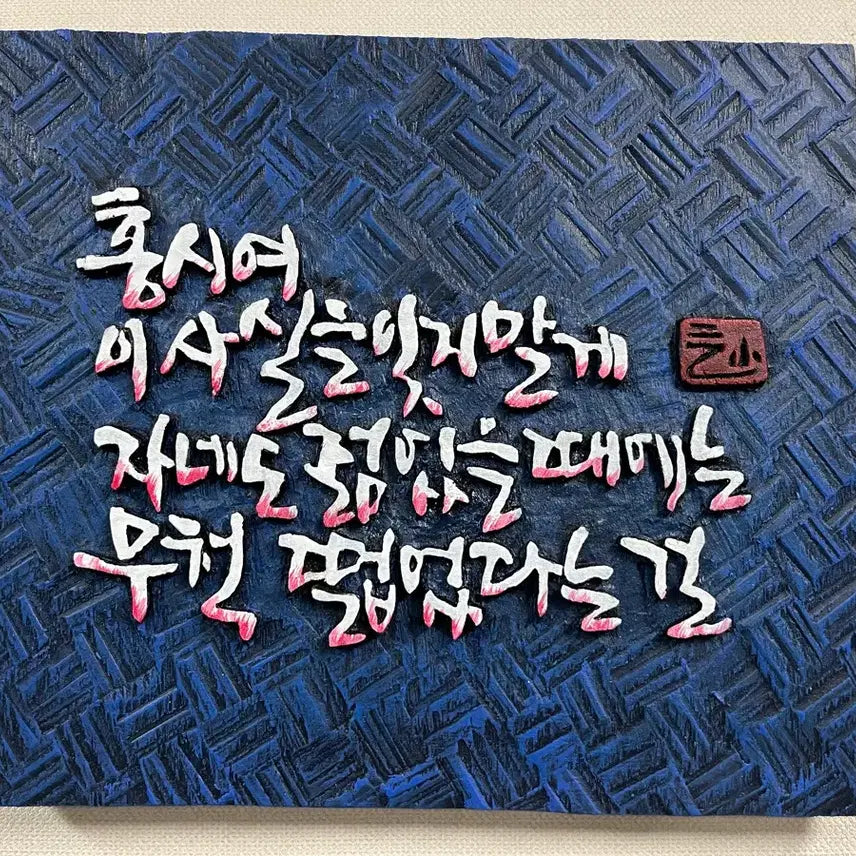 홍시여
이 사실을 잊지 말게
자네도 젊었을 때에는
무척 떫었다는 걸